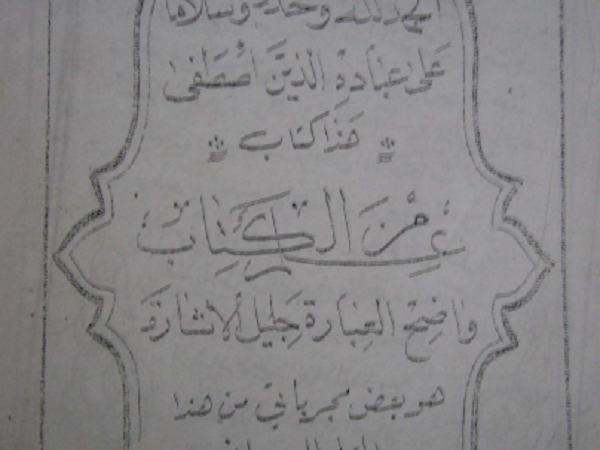 الحمد لله وحده وسلاما
على عباده الذين اصطفى
هذا كتاب
من الكتاب
واضح العبارة جليل الإشارة
هو بعض مجرباتي من هذا